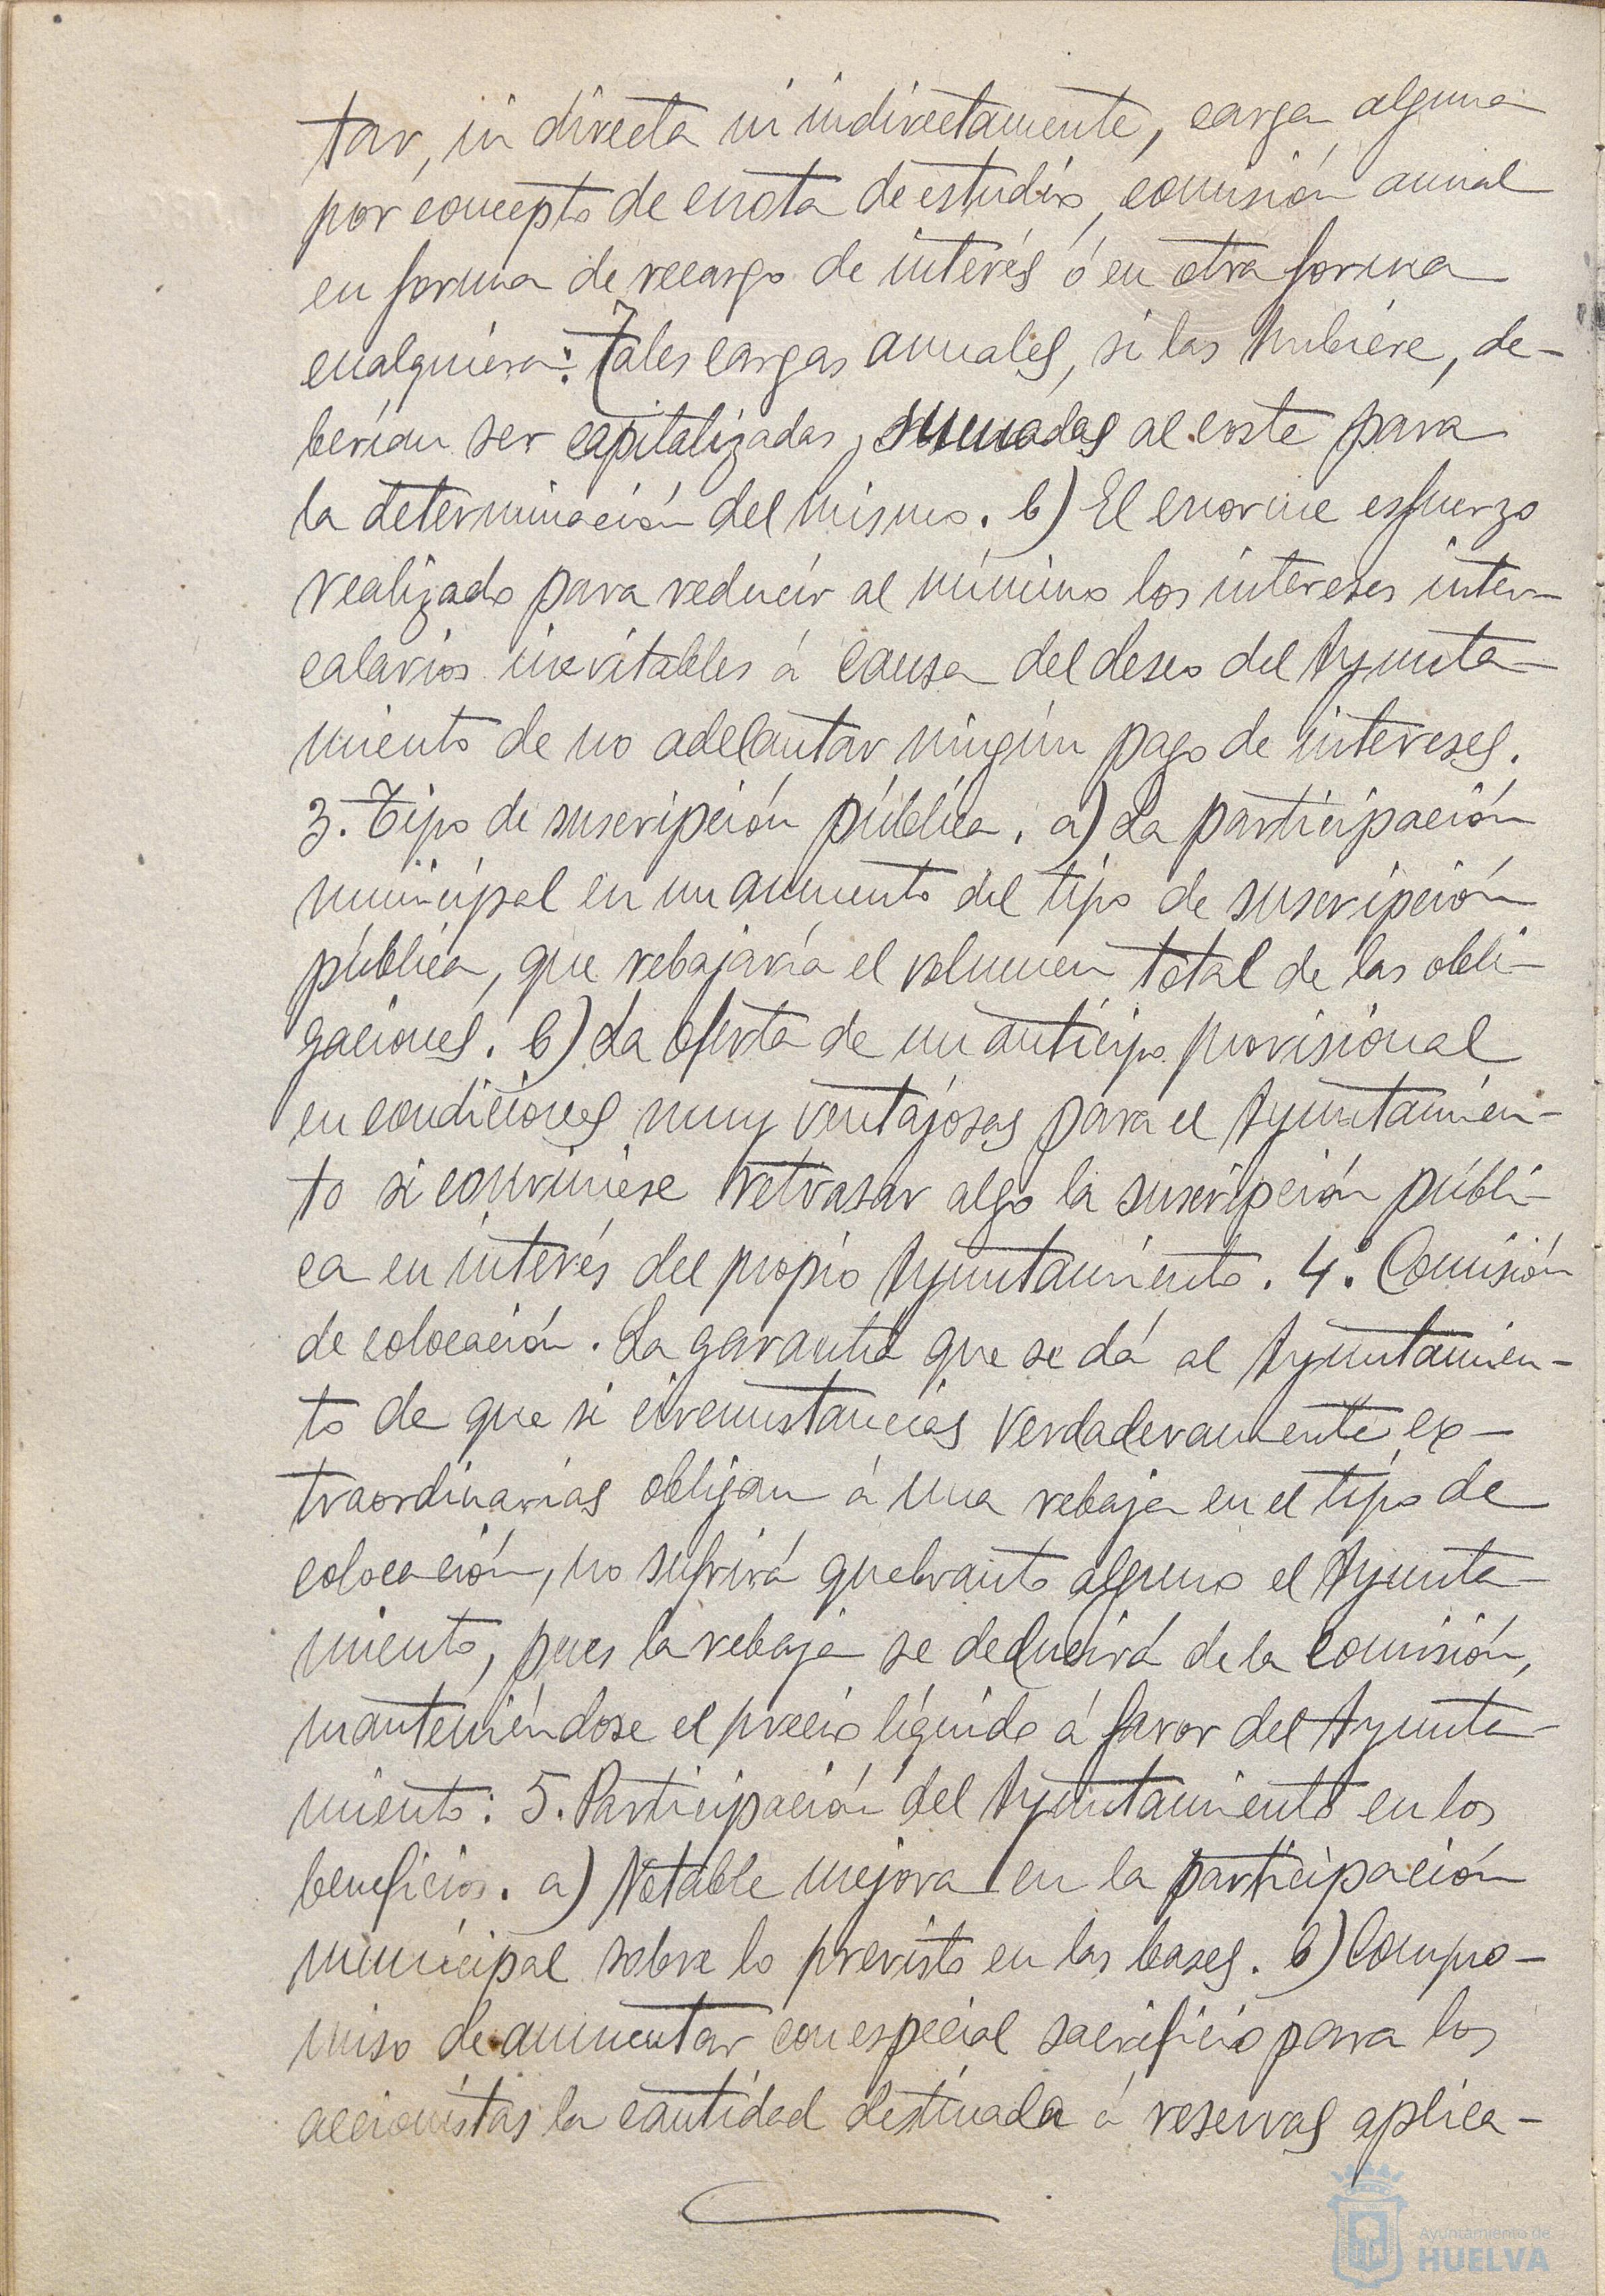 tar, ni directa ni indirectamente, carga alguna
por concepto de cuota de estudio, comisión anual
en forma de recargo de interés ó en otra forma
cualquiera: Tales cargas anuales, si las hubiere, de-
berían ser capitalizadas, sumadas al coste para
la determinación del mismo. b) El enorme esfuerzo
realizado para reducir al mínimo los intereses inter-
calarios inevitables á causa del deseo del Ayunta-
miento de no adelantar ningún pago de intereses.
3. Tipo de suscripción pública. a) La participación
municipal en un aumento del tipo de suscripción
pública, que rebajaría el volumen total de las obli-
gaciones. b) La oferta de un anticipo provisional
en condiciones muy ventajosas para el Ayuntamien-
to si conviniese retrasar algo la suscripción públi-
ca en interés del propio Ayuntamiento. 4. Comisión
de colocación. La garantía que se dá al Ayuntamien-
to de que si circunstancias verdaderamente ex-
traordinarias obligan á una rebaja en el tipo de
colocación, no sufrirá quebranto alguno el Ayunta-
miento, pues la rebaja se deducirá de la comisión,
manteniéndose el precio líquido á favor del Ayunta-
miento: 5. Participación del Ayuntamiento en los
beneficios. a) Notable mejora en la participación
municipal sobre lo previsto en las bases. b) Compro-
miso de aumentar con especial sacrificio para los
accionistas la cantidad destinada á reservas aplica-
Ayuntamiento de
HUELVA